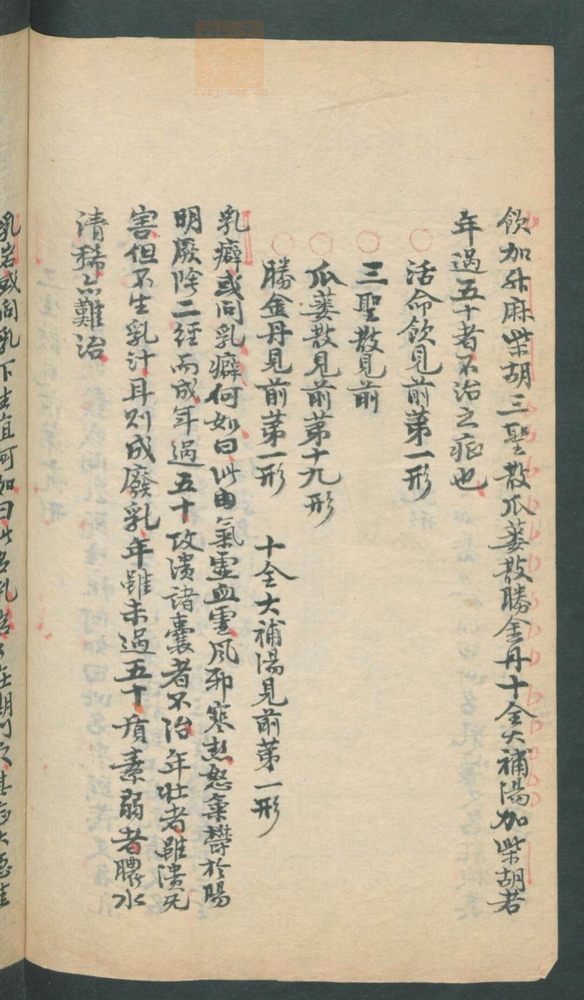 飲加升麻柴胡三聖散瓜蔞散勝金丹十全大補湯加柴胡若
年過五十者不治之症也
活命飲見前第一形
三聖散見前
瓜蔞散見前第十九形
勝金丹見前第一形 十全大補湯見前第一形
乳癖或问乳癖何如曰此由氣虛血虛風邪寒熱怒氣欝於陽
明厥陰二經而成年過五十攻潰諸囊者不治年壯者雖潰无
害但不生乳汁耳則成廢乳年雖未過五十質素弱者膿水
清稀亦難治
乳岩或问乳下生疽何如曰此名乳岩